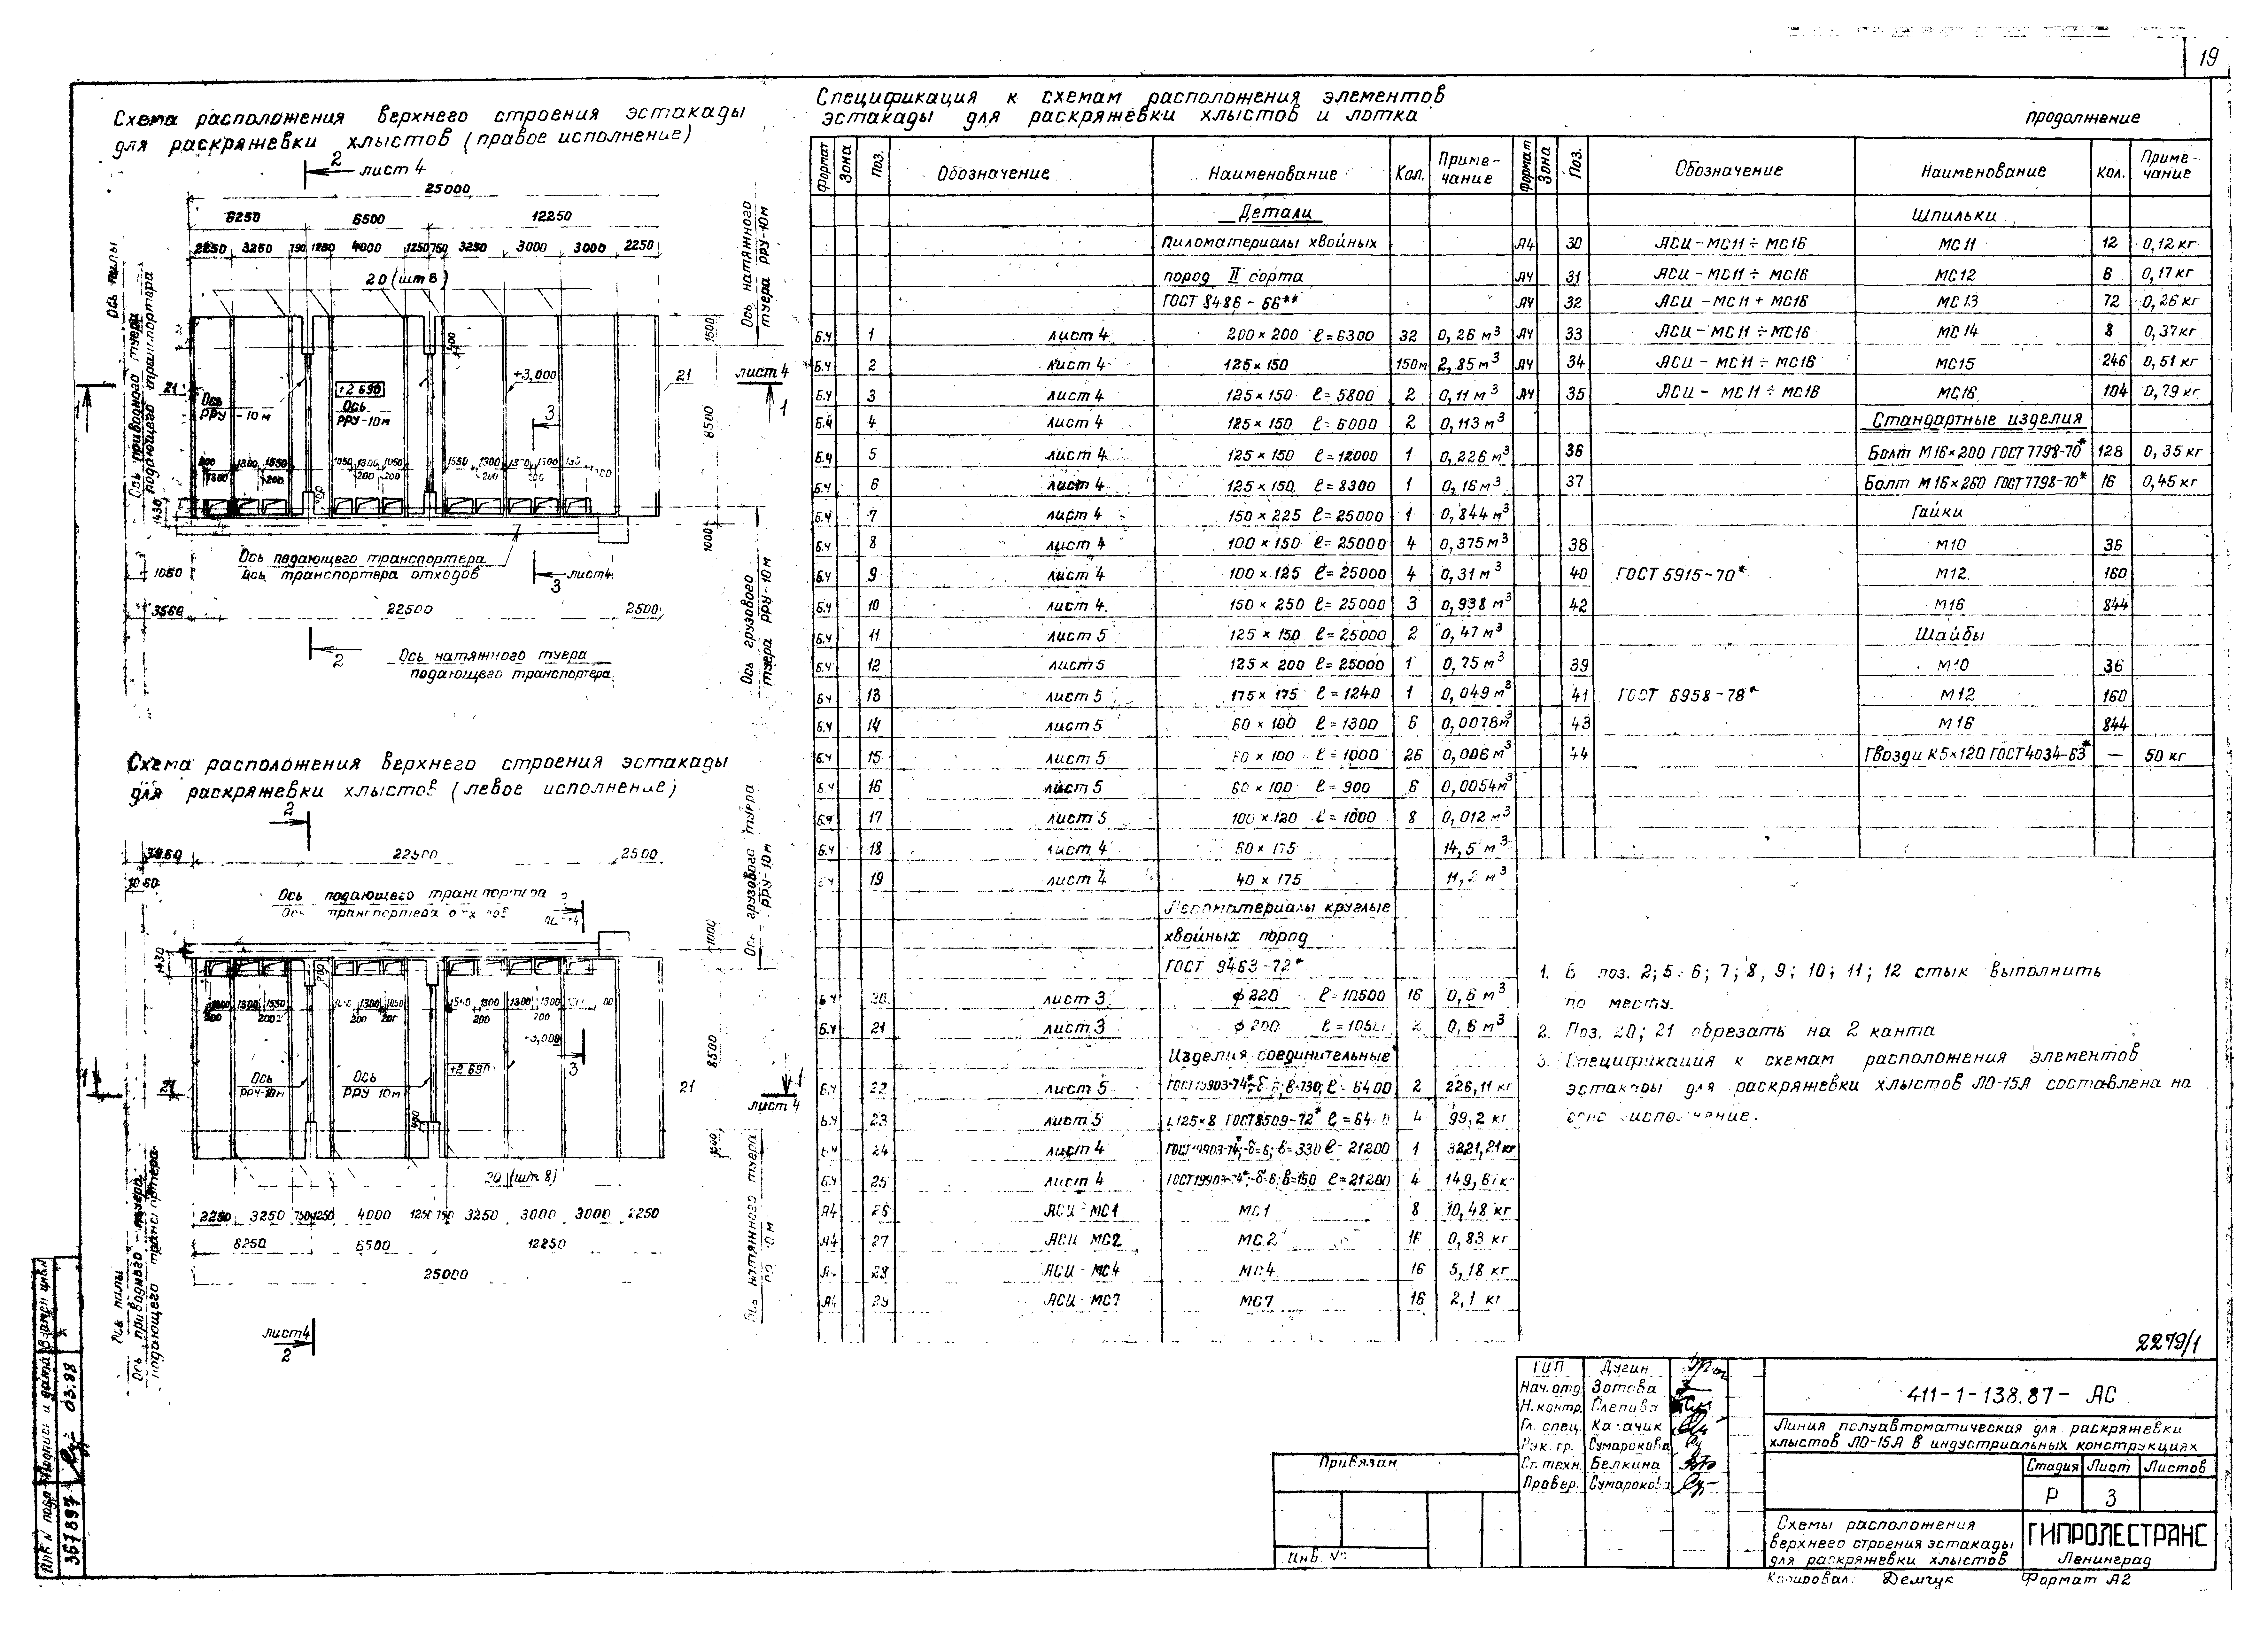 19
Схема расположения верхнего строения эстакады
для раскряжевки хлыстов (правое исполнение)
2
лист 4
25000
6250 6500 12250
2250 3250 750 1250 4000 1250 750 3250 3000 3000 2250
20 (шт 8)
Ось пилы
Ось приводного туера
подающего транспортера
Ось натяжного
туера РРУ-10м
1500
400
21
+3,000
21
лист 4
1
1
+2 690
Ось
РРУ-10м
Ось
РРУ-10м
3
8500
1430
1000
Ось подающего транспортера
Ось транспортера отходов
3
лист4
1060
3560 22500 2500
2
Ось натяжного туера
подающего транспортера
Ось грузового
туера РРУ-10м
Схема расположения верхнего строения эстакады
для раскряжевки хлыстов (левое исполнение)
2
3560 22500 2500
1060
Ось подающего транспортера
3
Ось грузового туера
РРУ-10м
1430
1000
8500
3
+2 690
Ось
РРУ-10м
Ось
РРУ 10м
1
21
21
1
лист 4
400
20 (шт 8)
2250 3250 750 1250 4000 1250 750 3250 3000 3000 2250
6250 6500 12250
25000
Ось пилы
Ось приводного туера
подающего транспортера
Ось натяжного туера
лист4
2
Спецификация к схемам расположения элементов
эстакады для раскряжевки хлыстов и лотка
продолжение
Формат Зона Поз. Обозначение Наименование Кол. Приме-чание
Детали
Пиломатериалы хвойных
пород II сорта
ГОСТ 8486-66**
Б.Ч 1 лист 4 200×200 ℓ=6300 32 0,26 м³
Б.Ч 2 лист 4 125×150 150м 2,85м³
Б.Ч 3 лист 4 125×150 ℓ=5800 2 0,11 м³
Б.Ч 4 лист 4 125×150 ℓ=6000 2 0,113 м³
Б.Ч 5 лист 4 125×150 ℓ=12000 1 0,226 м³
Б.Ч 6 лист 4 125×150 ℓ=8300 1 0,16 м³
Б.Ч 7 лист 4 150×225 ℓ=25000 1 0,844 м³
Б.Ч 8 лист 4 100×150 ℓ=25000 4 0,375 м³
Б.Ч 9 лист 4 100×125 ℓ=25000 4 0,31 м³
Б.Ч 10 лист 4 150×250 ℓ=25000 3 0,938 м³
Б.Ч 11 лист 5 125×150 ℓ=25000 2 0,47 м³
Б.Ч 12 лист 5 125×200 ℓ=25000 1 0,75 м³
Б.Ч 13 лист 5 175×175 ℓ=1240 1 0,049 м³
Б.Ч 14 лист 5 60×100 ℓ=1300 6 0,0078м³
Б.Ч 15 лист 5 60×100 ℓ=1000 26 0,006 м³
Б.Ч 16 лист 5 60×100 ℓ=900 6 0,0054м³
Б.Ч 17 лист 5 100×120 ℓ=1000 8 0,012 м³
Б.Ч 18 лист 4 50×175 14,5 м³
Б.Ч 19 лист 4 40×175 м³
Лесоматериалы круглые
хвойных пород
ГОСТ 9463-72*
Б.Ч 20 лист 3 ϕ220 ℓ=10500 16 0,6 м³
Б.Ч 21 лист 3 ϕ200 2 0,6 м³
Изделия соединительные
Б.Ч 22 лист 5 ГОСТ19903-74*; δ=6; в=730; ℓ=6400 2 226,11 кг
Б.Ч 23 лист 5 L125×8 ГОСТ8509-72* 4 99,2 кг
Б.Ч 24 лист 4 ГОСТ19903-74*; δ=6; в=330 ℓ=21200 1 3221,21кг
Б.Ч 25 лист 4 ГОСТ19903-74*; δ=6; в=150 ℓ=21200 4
А4 26 АСИ-МС1 МС1 8 10,48 кг
А4 27 АСИ МС2 МС2 16 0,83 кг
28 АСИ-МС4 МС4 16 5,18 кг
А4 29 АСИ-МС7 МС7 16 2,1 кг
Формат Зона Поз. Обозначение Наименование Кол. Приме-чание
Шпильки
А4 30 АСИ-МС11÷МС16 МС11 12 0,12 кг
А4 31 АСИ-МС11÷МС16 МС12 6 0,17 кг
А4 32 АСИ-МС11÷МС16 МС13 72 0,26 кг
А4 33 АСИ-МС11÷МС16 МС14 8 0,37кг
А4 34 АСИ-МС11÷МС16 МС15 246 0,51 кг
А4 35 АСИ-МС11÷МС16 МС16 104 0,79 кг
Стандартные изделия
36 Болт М16×200 ГОСТ7798-70* 128 0,35 кг
37 Болт М16×260 ГОСТ7798-70* 16 0,45 кг
Гайки
38 М10 36
40 ГОСТ 5915-70* М12 160
42 М16 844
Шайбы
39 М10 36
41 ГОСТ 6958-78* М12 160
43 М16 844
44 Гвозди К5×120 ГОСТ4034-63* — 50 кг
1. В поз. 2; 5; 6; 7; 8; 9; 10; 11; 12 стык выполнить
по месту.
2. Поз. 20; 21 обрезать на 2 канта
3. Спецификация к схемам расположения элементов
эстакады для раскряжевки хлыстов ЛО-15А составлена на
одно исполнение.
2279/1
ГИП Дугин
Нач.отд. Зотова
Н.контр. Слепцова
Гл. спец. Казачик
Рук. гр. Сумарокова
Ст. техн. Белкина
Провер. Сумарокова
411-1-138.87- АС
Линия полуавтоматическая для раскряжевки
хлыстов ЛО-15А в индустриальных конструкциях
Стадия Лист Листов
Р 3
Схемы расположения
верхнего строения эстакады
для раскряжевки хлыстов
ГИПРОЛЕСТРАНС
Ленинград
Привязан
Инв. №
Копировал: Демчук Формат А2
Инв N подл Подпись и дата Взамен инв.N
367897 03.88